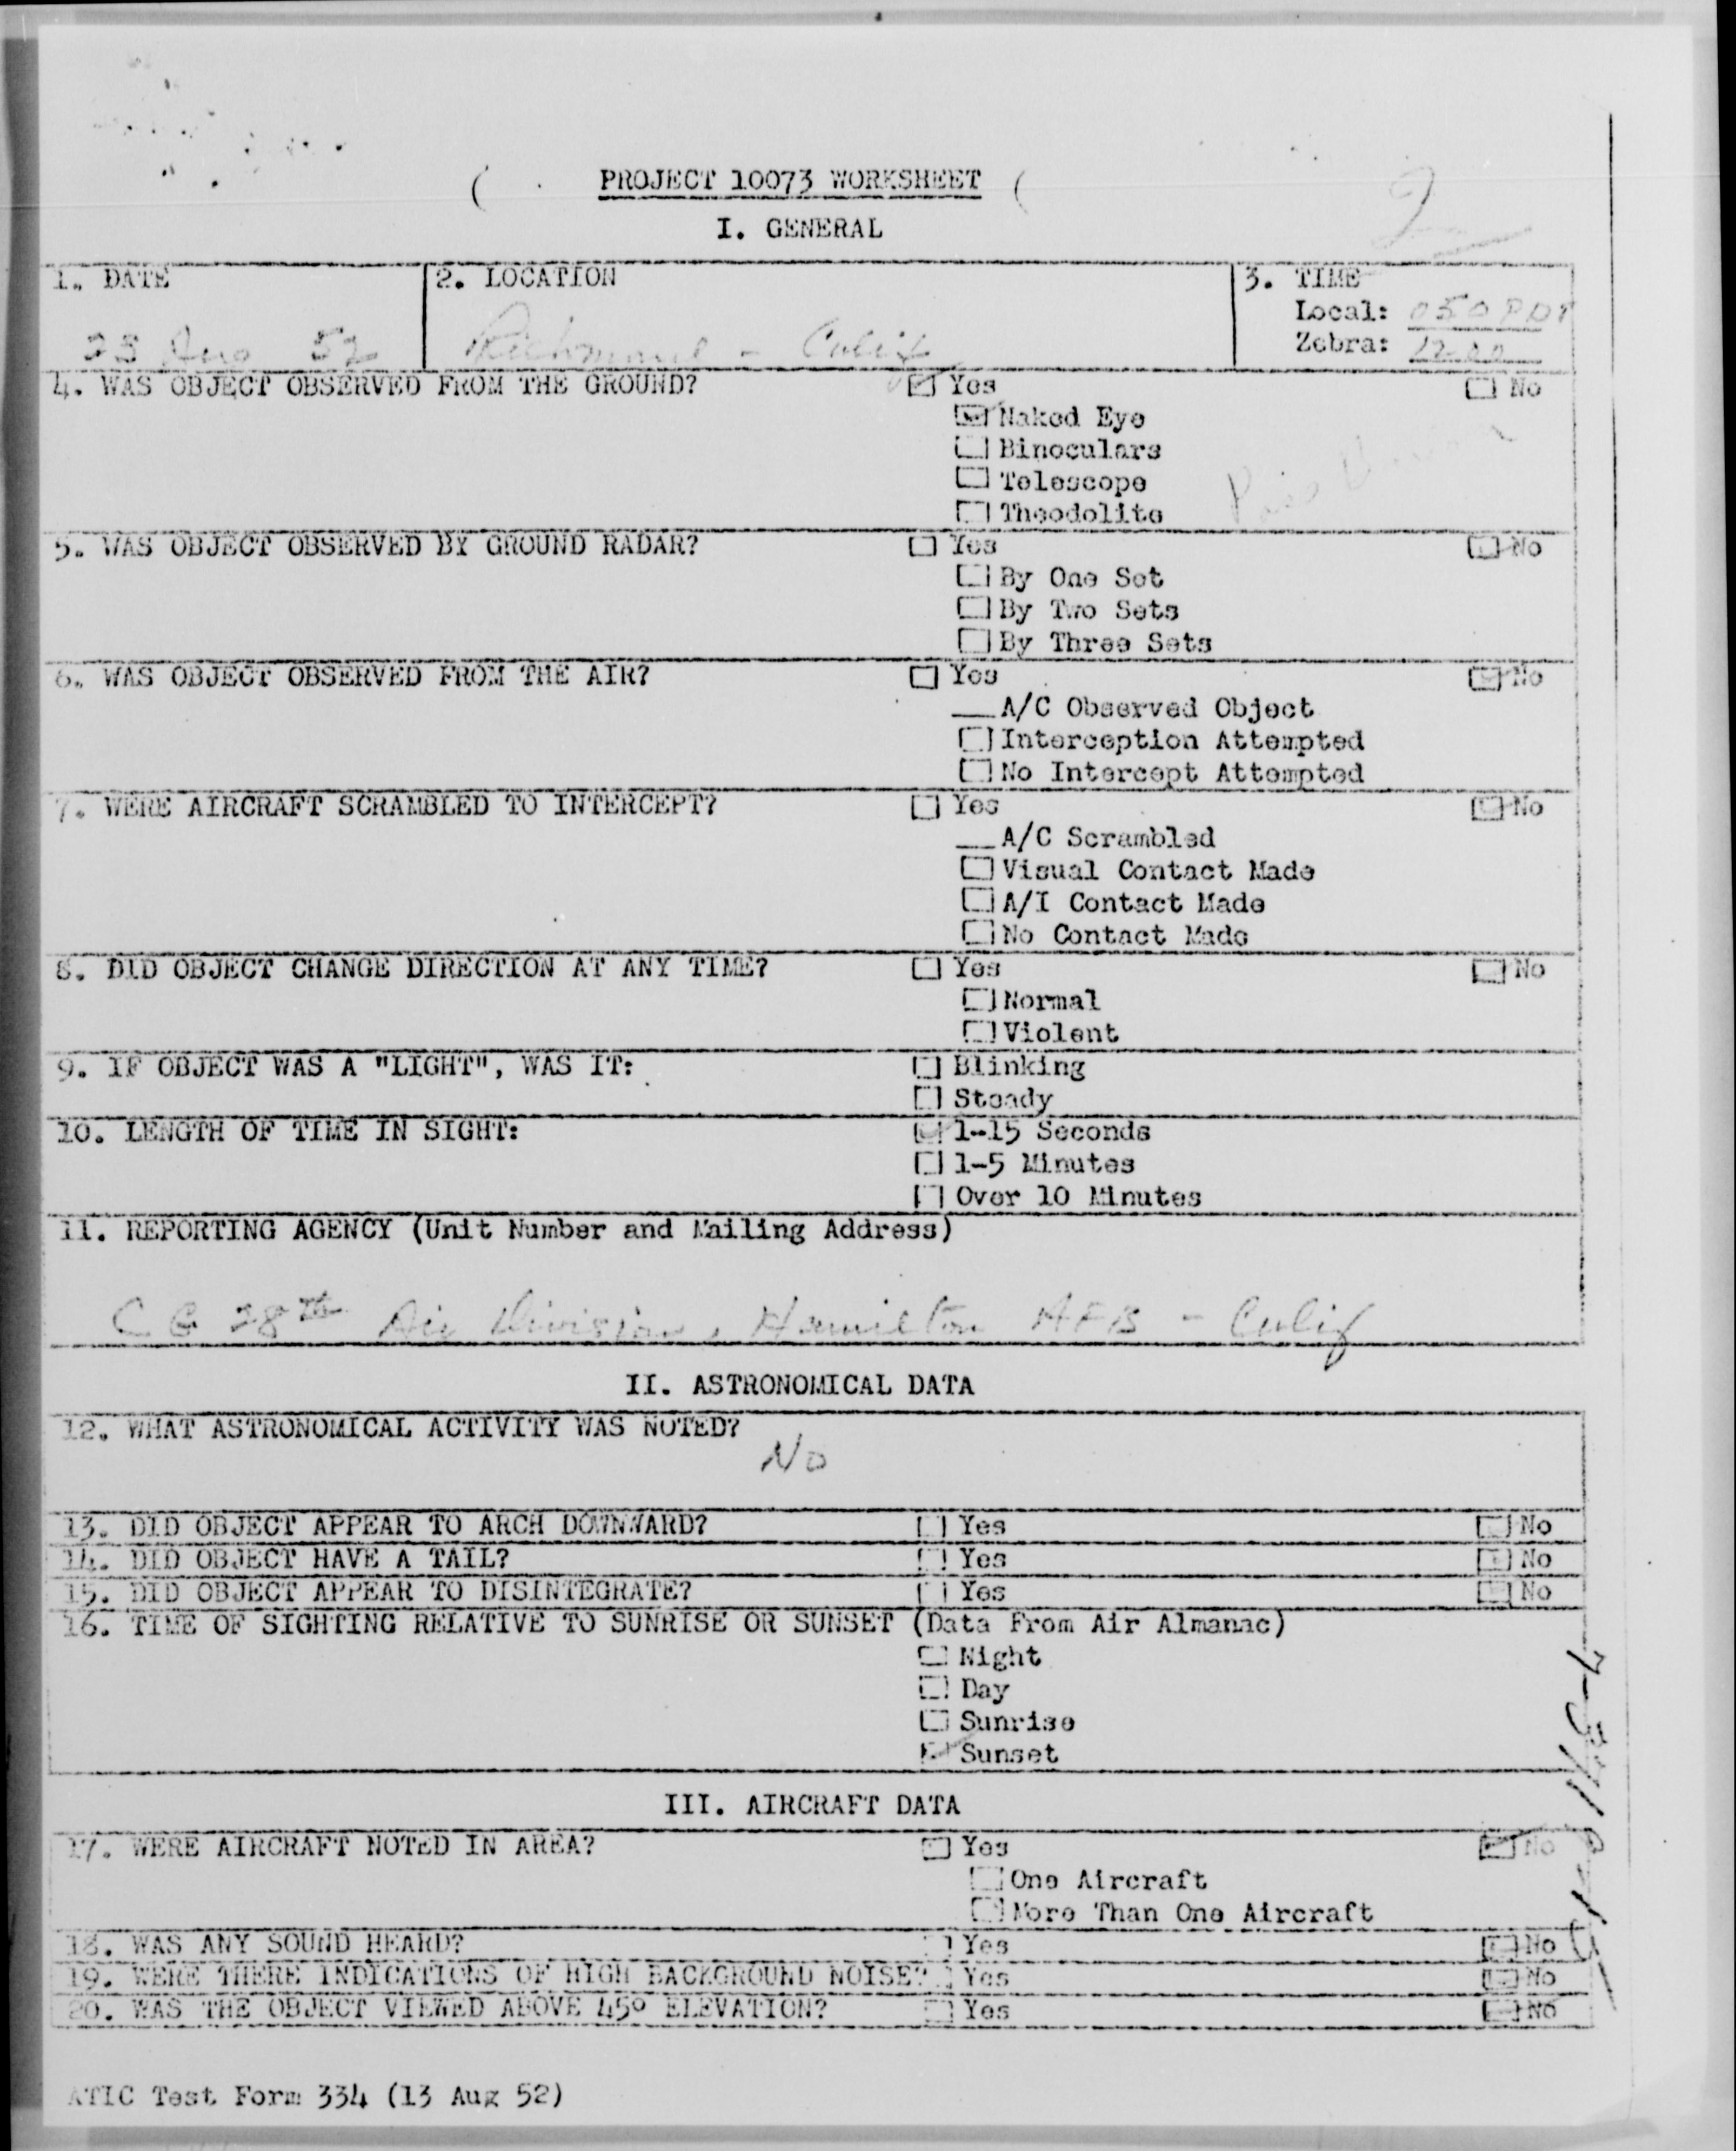 PROJECT 10073 WORKSHEET
2
I. GENERAL
1. DATE
2. LOCATION
3. TIME
Local: 050 PDT
25 Aug 52
Richmond - Calif
Zebra: 12 00
4. WAS OBJECT OBSERVED FROM THE GROUND? Yes No
Naked Eye
Binoculars
Telescope
Theodolite
5. WAS OBJECT OBSERVED BY GROUND RADAR? Yes No
By One Set
By Two Sets
By Three Sets
6. WAS OBJECT OBSERVED FROM THE AIR? Yes No
A/C Observed Object
Interception Attempted
No Intercept Attempted
7. WERE AIRCRAFT SCRAMBLED TO INTERCEPT? Yes No
A/C Scrambled
Visual Contact Made
A/I Contact Made
No Contact Made
8. DID OBJECT CHANGE DIRECTION AT ANY TIME? Yes No
Normal
Violent
9. IF OBJECT WAS A "LIGHT", WAS IT: Blinking
Steady
10. LENGTH OF TIME IN SIGHT: 1-15 Seconds
1-5 Minutes
Over 10 Minutes
11. REPORTING AGENCY (Unit Number and Mailing Address)
C G 28th Air Division, Hamilton AFB - Calif
II. ASTRONOMICAL DATA
12. WHAT ASTRONOMICAL ACTIVITY WAS NOTED?
No
13. DID OBJECT APPEAR TO ARCH DOWNWARD? Yes No
14. DID OBJECT HAVE A TAIL? Yes No
15. DID OBJECT APPEAR TO DISINTEGRATE? Yes No
16. TIME OF SIGHTING RELATIVE TO SUNRISE OR SUNSET (Data From Air Almanac)
Night
Day
Sunrise
Sunset
III. AIRCRAFT DATA
17. WERE AIRCRAFT NOTED IN AREA? Yes No
One Aircraft
More Than One Aircraft
18. WAS ANY SOUND HEARD? Yes No
19. WERE THERE INDICATIONS OF HIGH BACKGROUND NOISE? Yes No
20. WAS THE OBJECT VIEWED ABOVE 45° ELEVATION? Yes No
ATIC Test Form 334 (13 Aug 52)